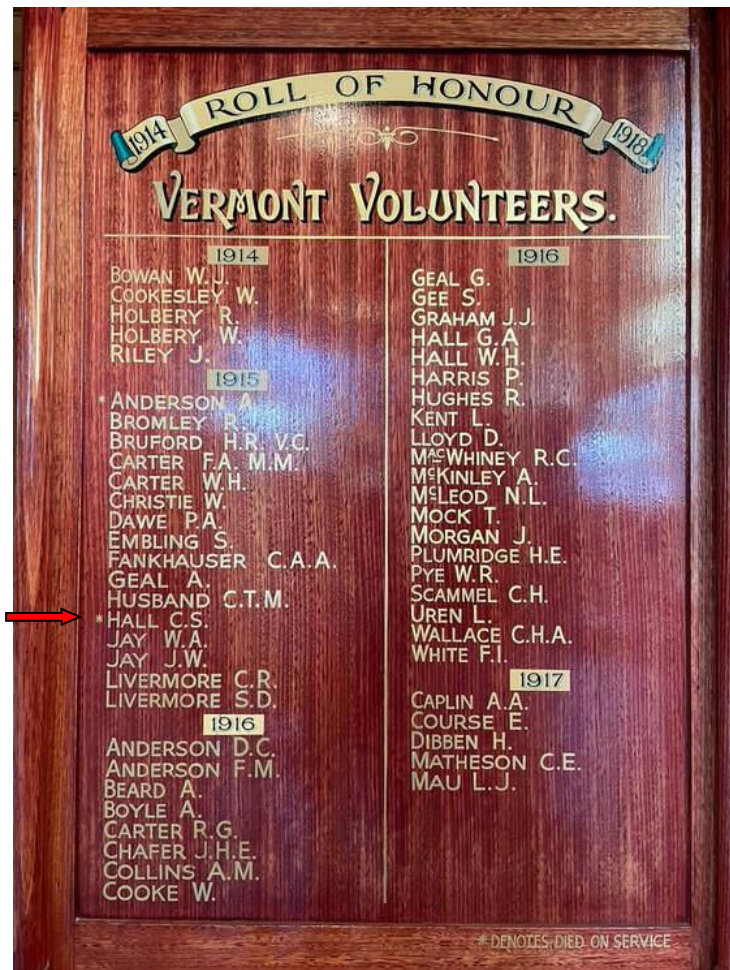 1914 ROLL OF HONOUR 1918
VERMONT VOLUNTEERS.
1914
BOWAN W.J.
COOKESLEY W.
HOLBERY R.
HOLBERY W.
RILEY J.
1915
*ANDERSON A.
BROMLEY R.
BRUFORD H.R. V.C.
CARTER F.A. M.M.
CARTER W.H.
CHRISTIE W.
DAWE P.A.
EMBLING S.
FANKHAUSER C.A.A.
GEAL A.
HUSBAND C.T.M.
*HALL C.S.
JAY W.A.
JAY J.W.
LIVERMORE C.R.
LIVERMORE S.D.
1916
ANDERSON D.C.
ANDERSON F.M.
BEARD A.
BOYLE A.
CARTER R.G.
CHAFER J.H.E.
COLLINS A.M.
COOKE W.
1916
GEAL G.
GEE S.
GRAHAM J.J.
HALL G.A
HALL W.H.
HARRIS P.
HUGHES R.
KENT L.
LLOYD D.
MACWHINEY R.C.
MCKINLEY A.
MCLEOD N.L.
MOCK T.
MORGAN J.
PLUMRIDGE H.E.
PYE W.R.
SCAMMEL C.H.
UREN L.
WALLACE C.H.A.
WHITE F.I.
1917
CAPLIN A.A.
COURSE E.
DIBBEN H.
MATHESON C.E.
MAU L.J.
* DENOTES DIED ON SERVICE